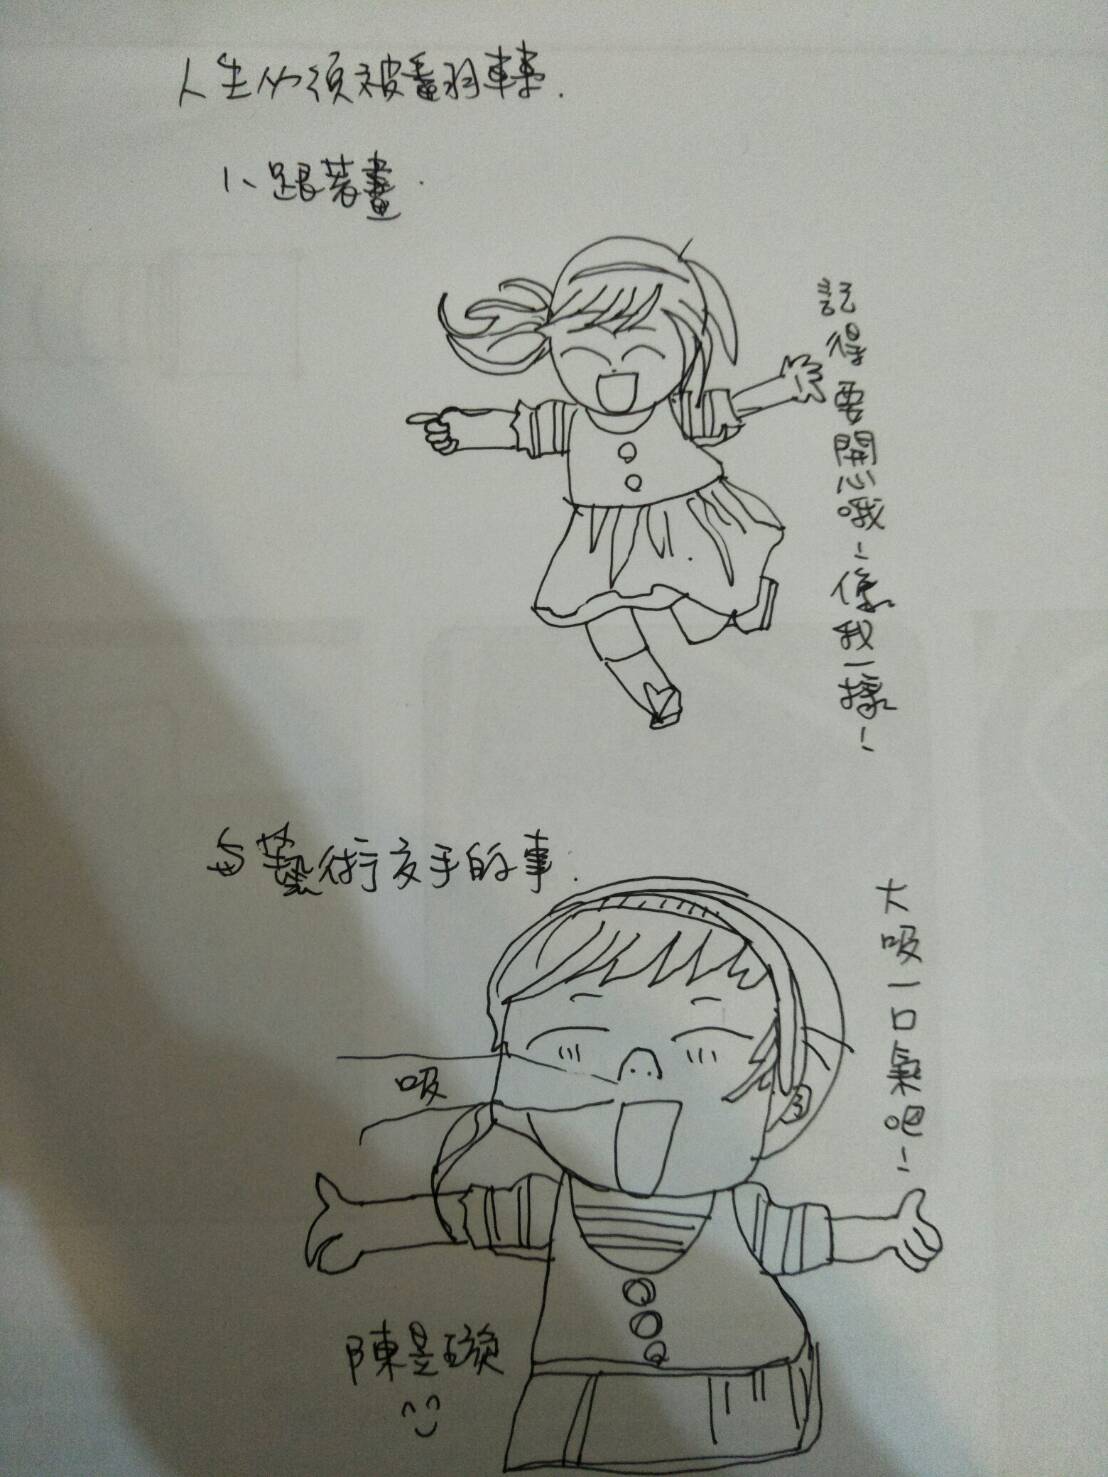 人生必須被翻轉.
1、跟著畫.
記得要開心哦!像我一樣!
与藝術交手的事.
大吸一口氣吧!
吸
陳昱璇